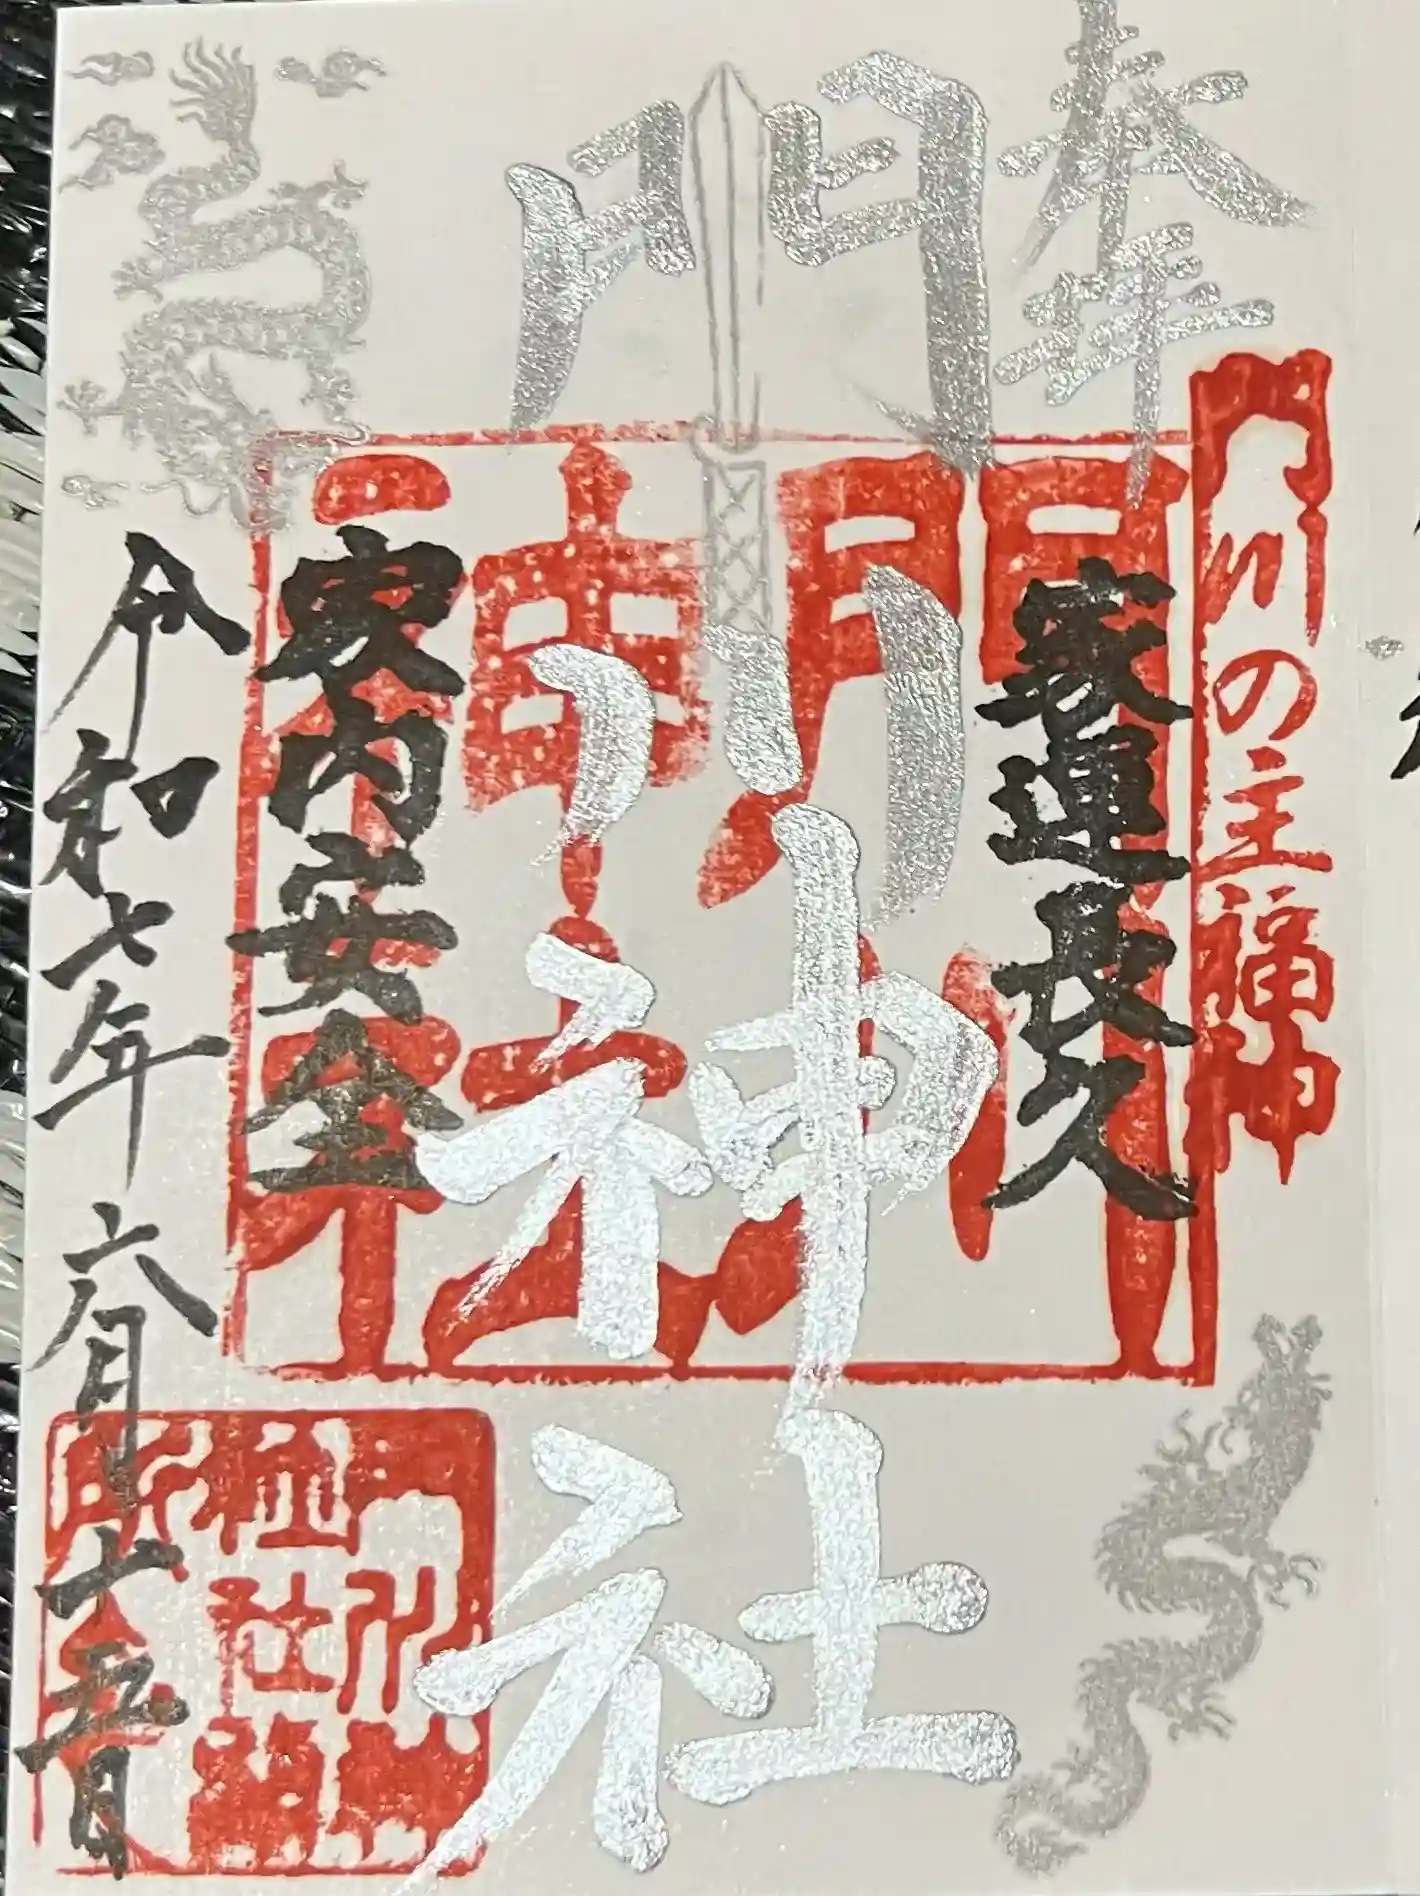 奉拝
門川の主福神
家運長久
門川神社
門川
神社
家内安全
令和七年六月十五日